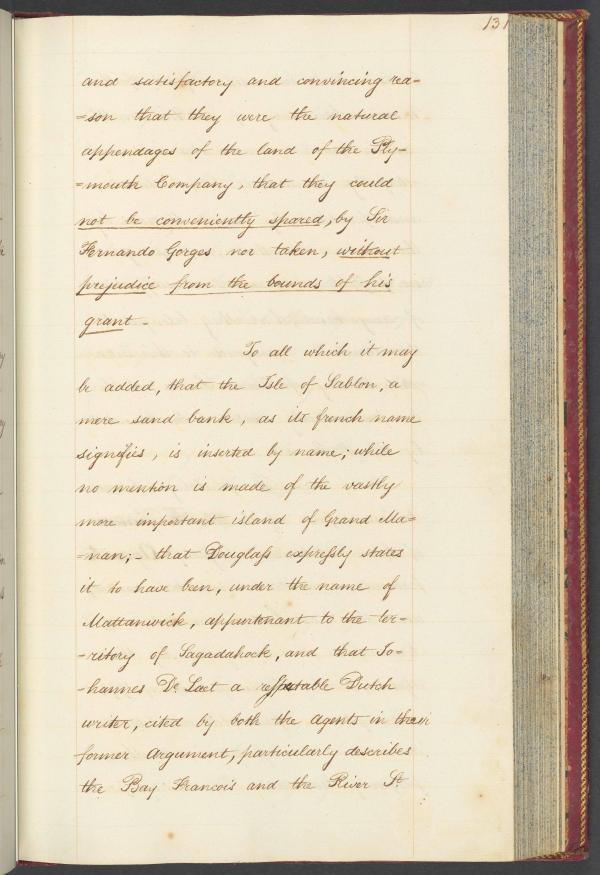 131
and satisfactory and convincing rea=
=son that they were the natural
appendages of the land of the Ply-
=mouth Company, that they could
not be conveniently spared, by Sir
Fernando Gorges nor taken, without
prejudice from the bounds of his
grant -
To all which it may
be added, that the Isle of Sablon, a
mere sand bank, as its french name
signifies, is inserted by name; while
no mention is made of the vastly
more important island of Grand Ma=
=nan; - that Douglass expressly states
it to have been, under the name of
Mattanwick, appurtenant to the ter-
-ritory of Sagadahock, and that Jo-
-hannes De Laet a respectable Dutch
writer, cited by both the Agents in their
former Argument, particularly describes
the Bay Francois and the River St